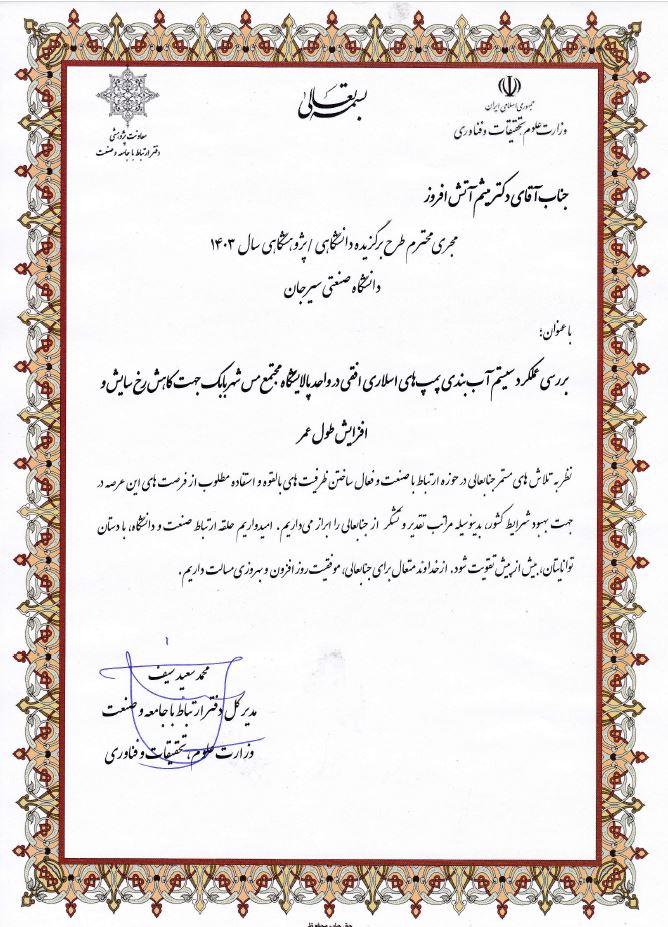 بسمه تعالی
جمهوری اسلامی ایران
وزارت علوم، تحقیقات و فناوری
معاونت پژوهشی
دفتر ارتباط با جامعه و صنعت
جناب آقای دکتر میثم آتش افروز
مجری محترم طرح برگزیده دانشگاهی / پژوهشگاهی سال ۱۴۰۳
دانشگاه صنعتی سیرجان
با عنوان؛
بررسی عملکرد سیستم آب بندی پمپ های اسلاری افقی در واحد پالایشگاه مجتمع مس شهربابک جهت کاهش رخ سایش و
افزایش طول عمر
نظر به تلاش های مستمر جنابعالی در حوزه ارتباط با صنعت و فعال ساختن ظرفیت های بالقوه و استفاده مطلوب از فرصت های این عرصه در
جهت بهبود شرایط کشور، بدینوسیله مراتب تقدیر و تشکر از جنابعالی را ابراز می‌داریم. امیدواریم حلقه ارتباط صنعت و دانشگاه، با دستان
توانایتان، بیش از پیش تقویت شود. از خداوند متعال برای جنابعالی، موفقیت روز افزون و بهروزی مسالت داریم.
محمد سعید سیف
مدیر کل دفتر ارتباط با جامعه و صنعت
وزارت علوم، تحقیقات و فناوری